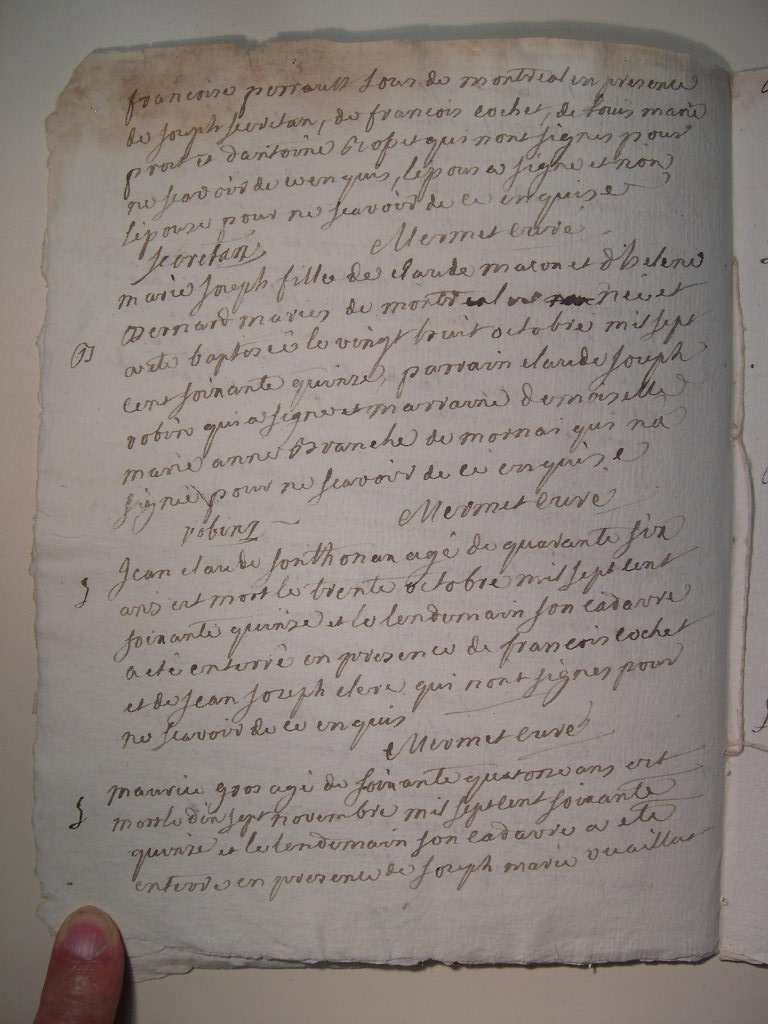 francoise perrault tous de montreal en presence
de joseph secretan, de francois cochet, de louis marie
prost et dantoine et qui nont signes pour
ne scavoir de ce enquis, lepoux a signe et non
lepouse pour ne scavoir de ce enquise
secretan Mermet curé
marie joseph fille de claude maçon et d'helene
Bernard mariés de montreal née et
B a ete baptisée le vingt huit octobre mil sept
cent soixante quinze, parrain claude joseph
robin qui a signe et marraine demoiselle
marie anne Branche de mornai qui na
signée pour ne scavoir de ce enquise
robin Mermet curé
S Jean claude sonthonax agé de quarante six
ans est mort le trente octobre mil sept cent
soixante quinze et le lendemain son cadavre
a eté enterré en presence de francois cochet
et de jean joseph clerc qui nont signes pour
ne scavoir de ce enquis
Mermet curé
S maurice gros agé de soixante quatorze ans est
mort le dix sept novembre mil sept cent soixante
quinze et le lendemain son cadavre a ete
enterre en presence de joseph marie vuaillat